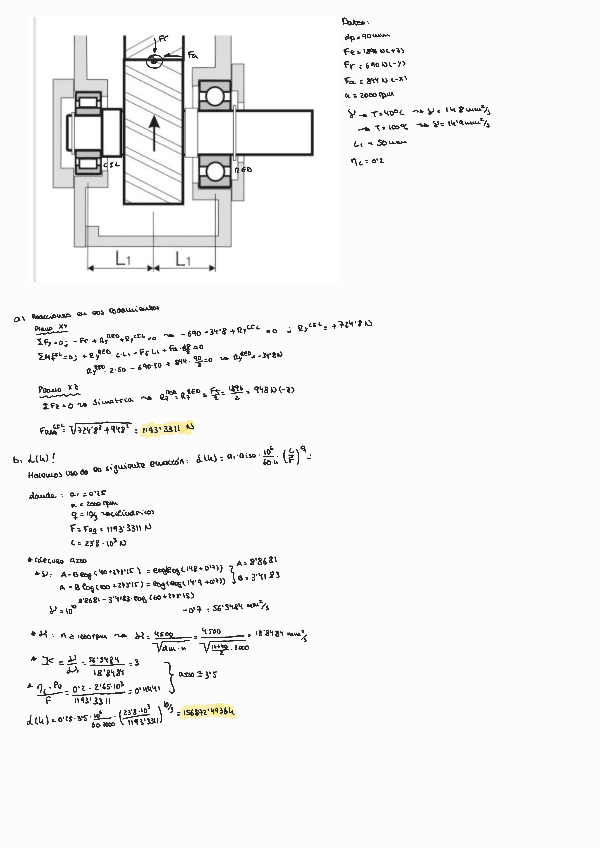 Fr
Fa
CSL
RED
L1
L1
Datos:
dp = 90 mm
Ft = 1896 N (+z)
Fr = 690 N (-y)
Fa = 844 N (-x)
n = 2000 rpm
T = 40ºC ⇝ ϑ = 148 mm²/s
T = 100ºC ⇝ ϑ = 14'9 mm²/s
L1 = 50 mm
ηc = 0'2
a) Reacciones en los rodamientos
Plano XY
ΣFy = 0; -Fr + Ry^RED + Ry^CSL = 0 ⇝ -690 - 34'8 + Ry^CSL = 0; Ry^CSL = +724'8 N
ΣM^CSL = 0; + Ry^RED · 2·L1 - Fr·L1 + Fa · dp/2 = 0
Ry^RED · 2·50 - 690·50 + 844 · 90/2 = 0 ⇝ Ry^RED = -34'8 N
Plano XZ
ΣFz = 0 ⇝ Simetrica ⇝ = Rz^RED = Ft/2 = 1896/2 = 948 N (-z)
= √724'8² + 948² = 1193'3311 N
b) L(h)?
Hacemos uso de la siguiente ecuación: L(h) = a1 · aiso · 10⁶/60·n · (C/F)^q
donde: a1 = 0'25
n = 2000 rpm
q = 10/3 → cilíndricos
F = Feq = 1193'3311 N
C = 23'8·10³ N
* Cálculo aiso
* ϑ: A - B log (40 + 273'15) = log log (148 + 0'7) } A = 8'8681
A - B log (100 + 273'15) = log log (14'9 + 0'7) } B = 3'4183
ϑ = 10^10^8'8681 - 3'4183·log (60 + 273'15) - 0'7 = 56'5484 mm²/s
* ϑ1: n ≥ 1000 rpm ⇝ ϑ1 = 4500/√dm·n = 4500/ = 18'8484 mm²/s
* K = ϑ/ϑ1 = 56'5484/18'8484 = 3
* ηc·Pu/F = 0'2 · 2'65·10³/1193'3311 = 0'4441 } aiso ≅ 3'5
L(h) = 0'25 · 3'5 · 10⁶/60·2000 · (23'8·10³/1193'3311)^10/3 = 156872'4936 h